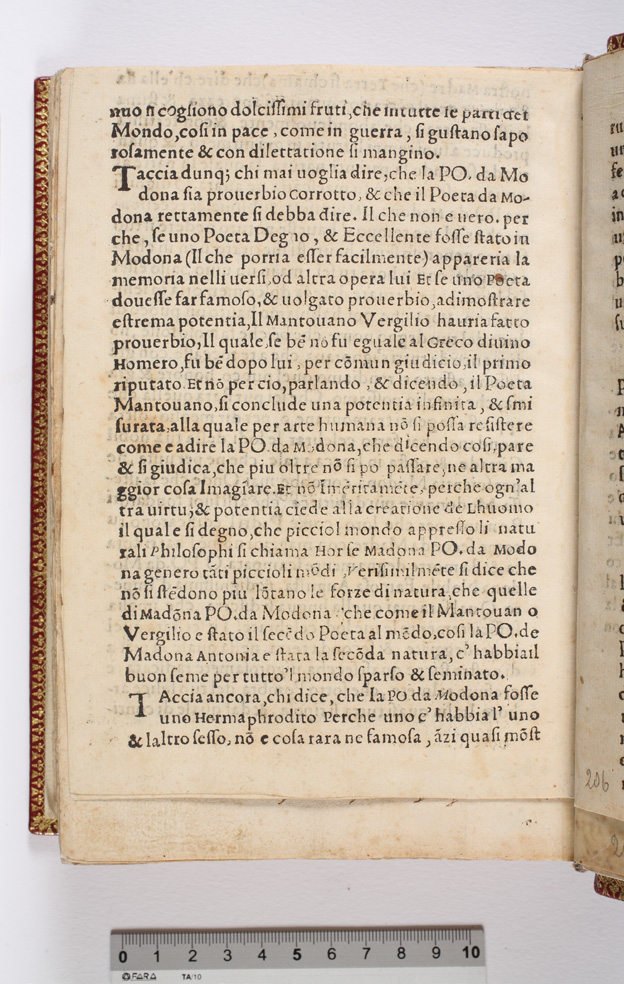 nuo si cogliono dolcissimi fruti, che in tutte le parti del
Mondo, cosi in pace, come in guerra, si gustano sapo
rosamente & con dilettatione si mangino.
Taccia dunq; chi mai uoglia dire, che la PO. da Mo
dona sia prouerbio corrotto, & che il Poeta da Mo-
dona rettamente si debba dire. Il che non e uero. per
che, se uno Poeta Degno, & Eccellente fosse stato in
Modona (Il che porria esser facilmente) appareria la
memoria nelli uersi, od altra opera lui Et se uno Poeta
douesse far famoso, & uolgato prouerbio, adimostrare
estrema potentia, Il Mantouano Vergilio hauria fatto
prouerbio, Il quale, se bē nō fu eguale al Greco diuino
Homero, fu bē dopo lui, per cōmun giudicio, il primo
riputato. Et nō per cio, parlando, & dicendo, il Poeta
Mantouano, si conclude una potentia infinita, & smi
surata, alla quale per arte humana nō si possa resistere
come e a dire la PO. da Modona, che dicendo cosi, pare
& si giudica, che piu oltre nō si po passare, ne altra ma
ggior cosa Imagiare. Et nō Imēritamēte, perche ogn'al
tra uirtu; & potentia ciede alla creatione de Lhuomo
il qual e si degno, che picciol mondo appresso li natu
rali Philosophi si chiama Hor se Madona PO. da Modo
na genero tāti piccioli mōdi, Verisimilmēte si dice che
nō si stēdono piu lōtano le forze di natura, che quelle
di Madōna PO. da Modona, che come il Mantouan o
Vergilio e stato il secēdo Poeta al mēdo, cosi la PO. de
Madona Antonia e stata la secōda natura, c' habbia il
buon seme per tutto'l mondo sparso & seminato.
TAccia ancora, chi dice, che la PO da Modona fosse
uno Hermaphrodito Perche uno c' habbia l' uno
& laltro sesso, nō e cosa rara ne famosa, āzi quasi mōst
206
0 1 2 3 4 5 6 7 8 9 10
FARA TA/10